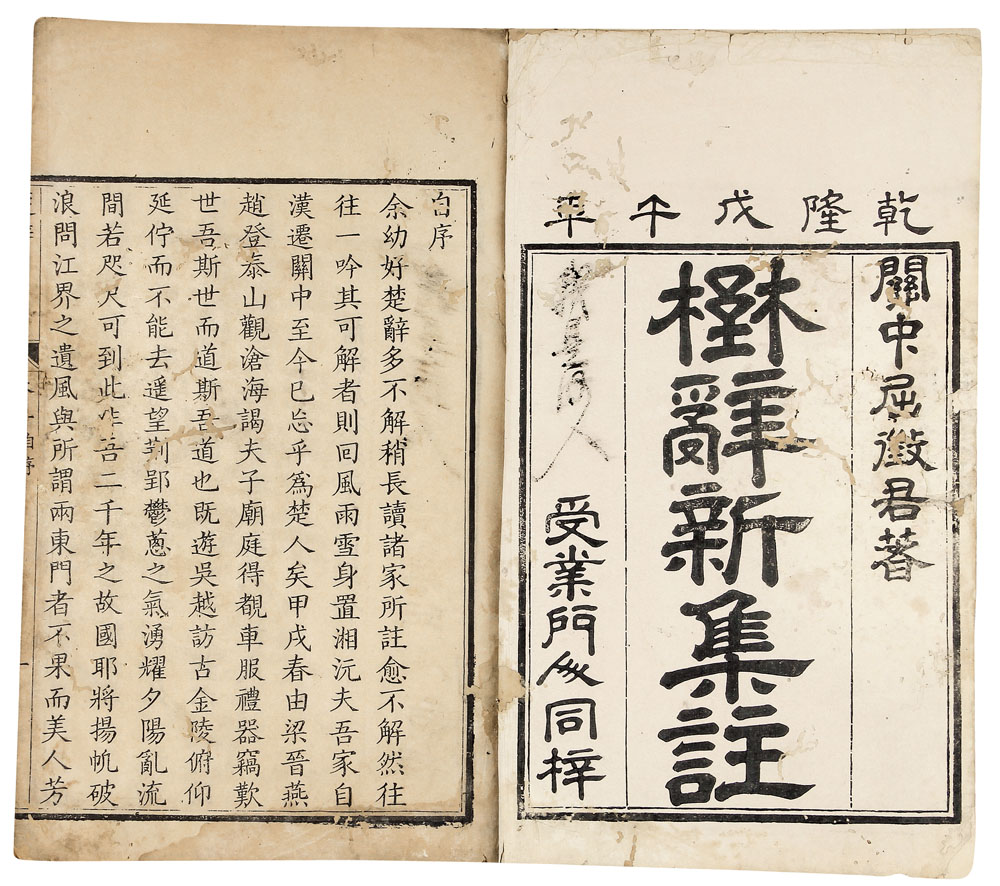 乾隆戊午年
關中屈徵君著
楚辭新集註
受業門人同梓
自序
余幼好楚辭多不解稍長讀諸家所註愈不解然往
往一吟其可解者則回風雨雪身置湘沅夫吾家自
漢遷關中至今已忘乎爲楚人矣甲戌春由梁晉燕
趙登泰山觀滄海謁夫子廟庭得覩車服禮器竊歎
世吾斯世而道斯吾道也既遊吳越訪古金陵俯仰
延佇而不能去遥望荆郢鬱蔥之氣湧耀夕陽亂流
間若咫尺可到此非吾二千年之故國耶將揚帆破
浪問江界之遺風與所謂兩東門者不果而美人芳
自序
一